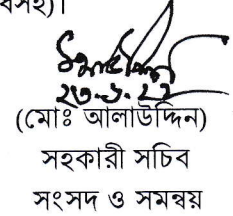 বসহ)।
(মোঃ আলাউদ্দিন)
সহকারী সচিব
সংসদ ও সমন্বয়